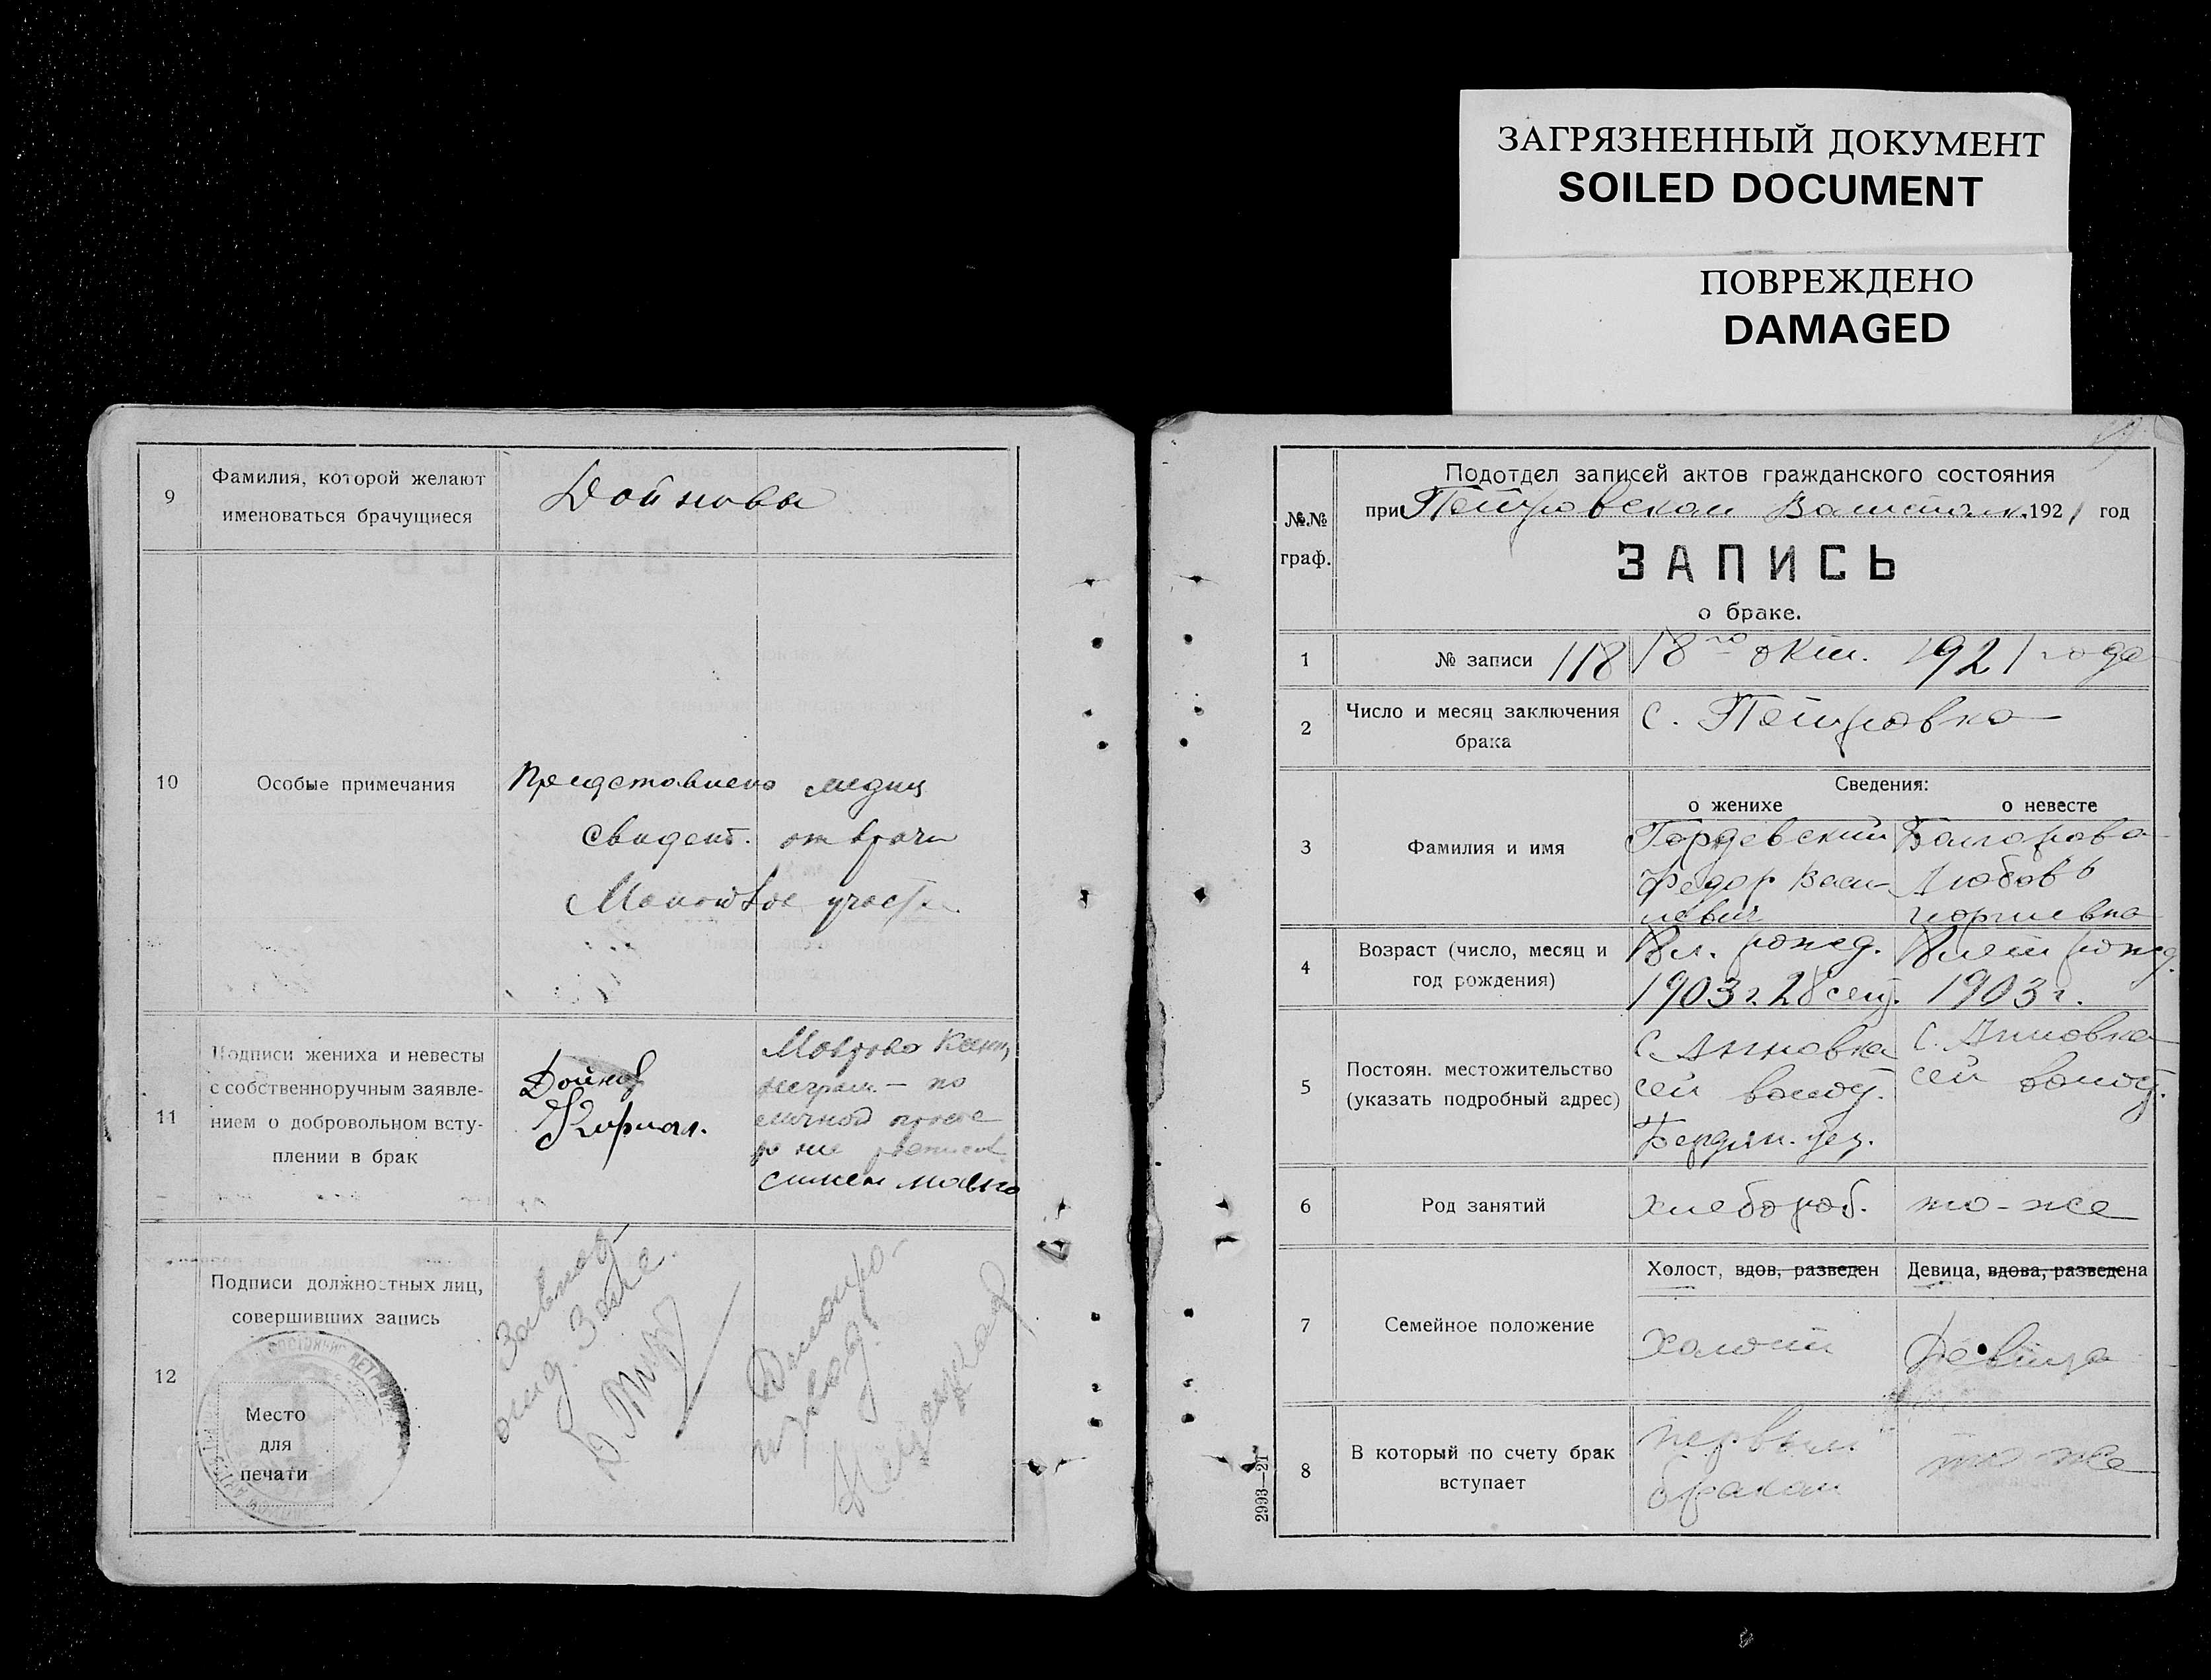 ЗАГРЯЗНЕННЫЙ ДОКУМЕНТ
SOILED DOCUMENT
ПОВРЕЖДЕНО
DAMAGED
9
Фамилия, которой желают
именоваться брачущиеся
Дойновы
10
Особые примечания
Представлено медиц
свидет. от врача
участка
11
Подписи жениха и невесты
с собственноручным заявле-
нием о добровольном всту-
плении в брак
Дойнов
Кирил.
неграм — по
личной прось
12
Подписи должностных лиц,
совершивших запись
Место
для
печати
№.№
граф.
Подотдел записей актов гражданского состояния
при Петровском 1921 год
ЗАПИСЬ
о браке.
1
№ записи 118
18го окт. 1921 года
2
Число и месяц заключения
брака
с. Петровка
3
Фамилия и имя
Сведения:
о женихе
о невесте
Гордевский
Федор Васи-
левич
Любовь
4
Возраст (число, месяц и
год рождения)
18 л. рожд.
1903 г. 28 сент.
18 лет рожд.
1903 г.
5
Постоян. местожительство
(указать подробный адрес)
с. Анновка
сей волост.
Бердян. уез.
с. Анновка
сей волост.
6
Род занятий
хлебороб.
то-же
7
Семейное положение
Холост, вдов, разведен
холост
Девица, вдова, разведена
Девица
8
В который по счету брак
вступает
первым
браком
то-же
2993—21